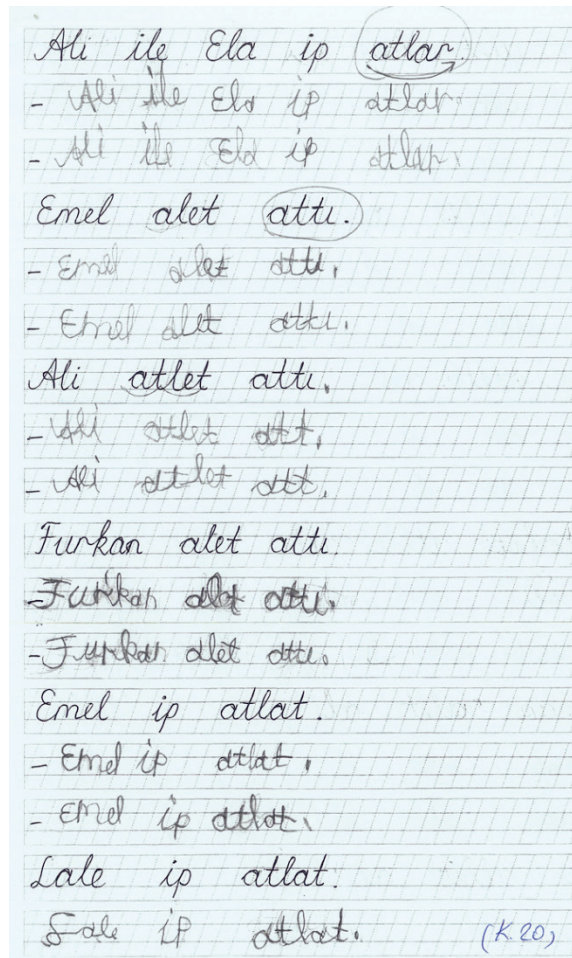 Ali ile Ela ip atlar.
- Ali ile Ela ip atlar.
- Ali ile Ela ip atlar.
Emel alet attı.
- Emel alet attı.
- Emel alet attı.
Ali atlet attı.
- Ali atlet att.
- Ali atlet att.
Furkan alet attı.
- Furkan alet attı.
- Furkan alet attı.
Emel ip atlat.
- Emel ip atlat.
- Emel ip atlat.
Lale ip atlat.
Lale ip atlat. (K.20)